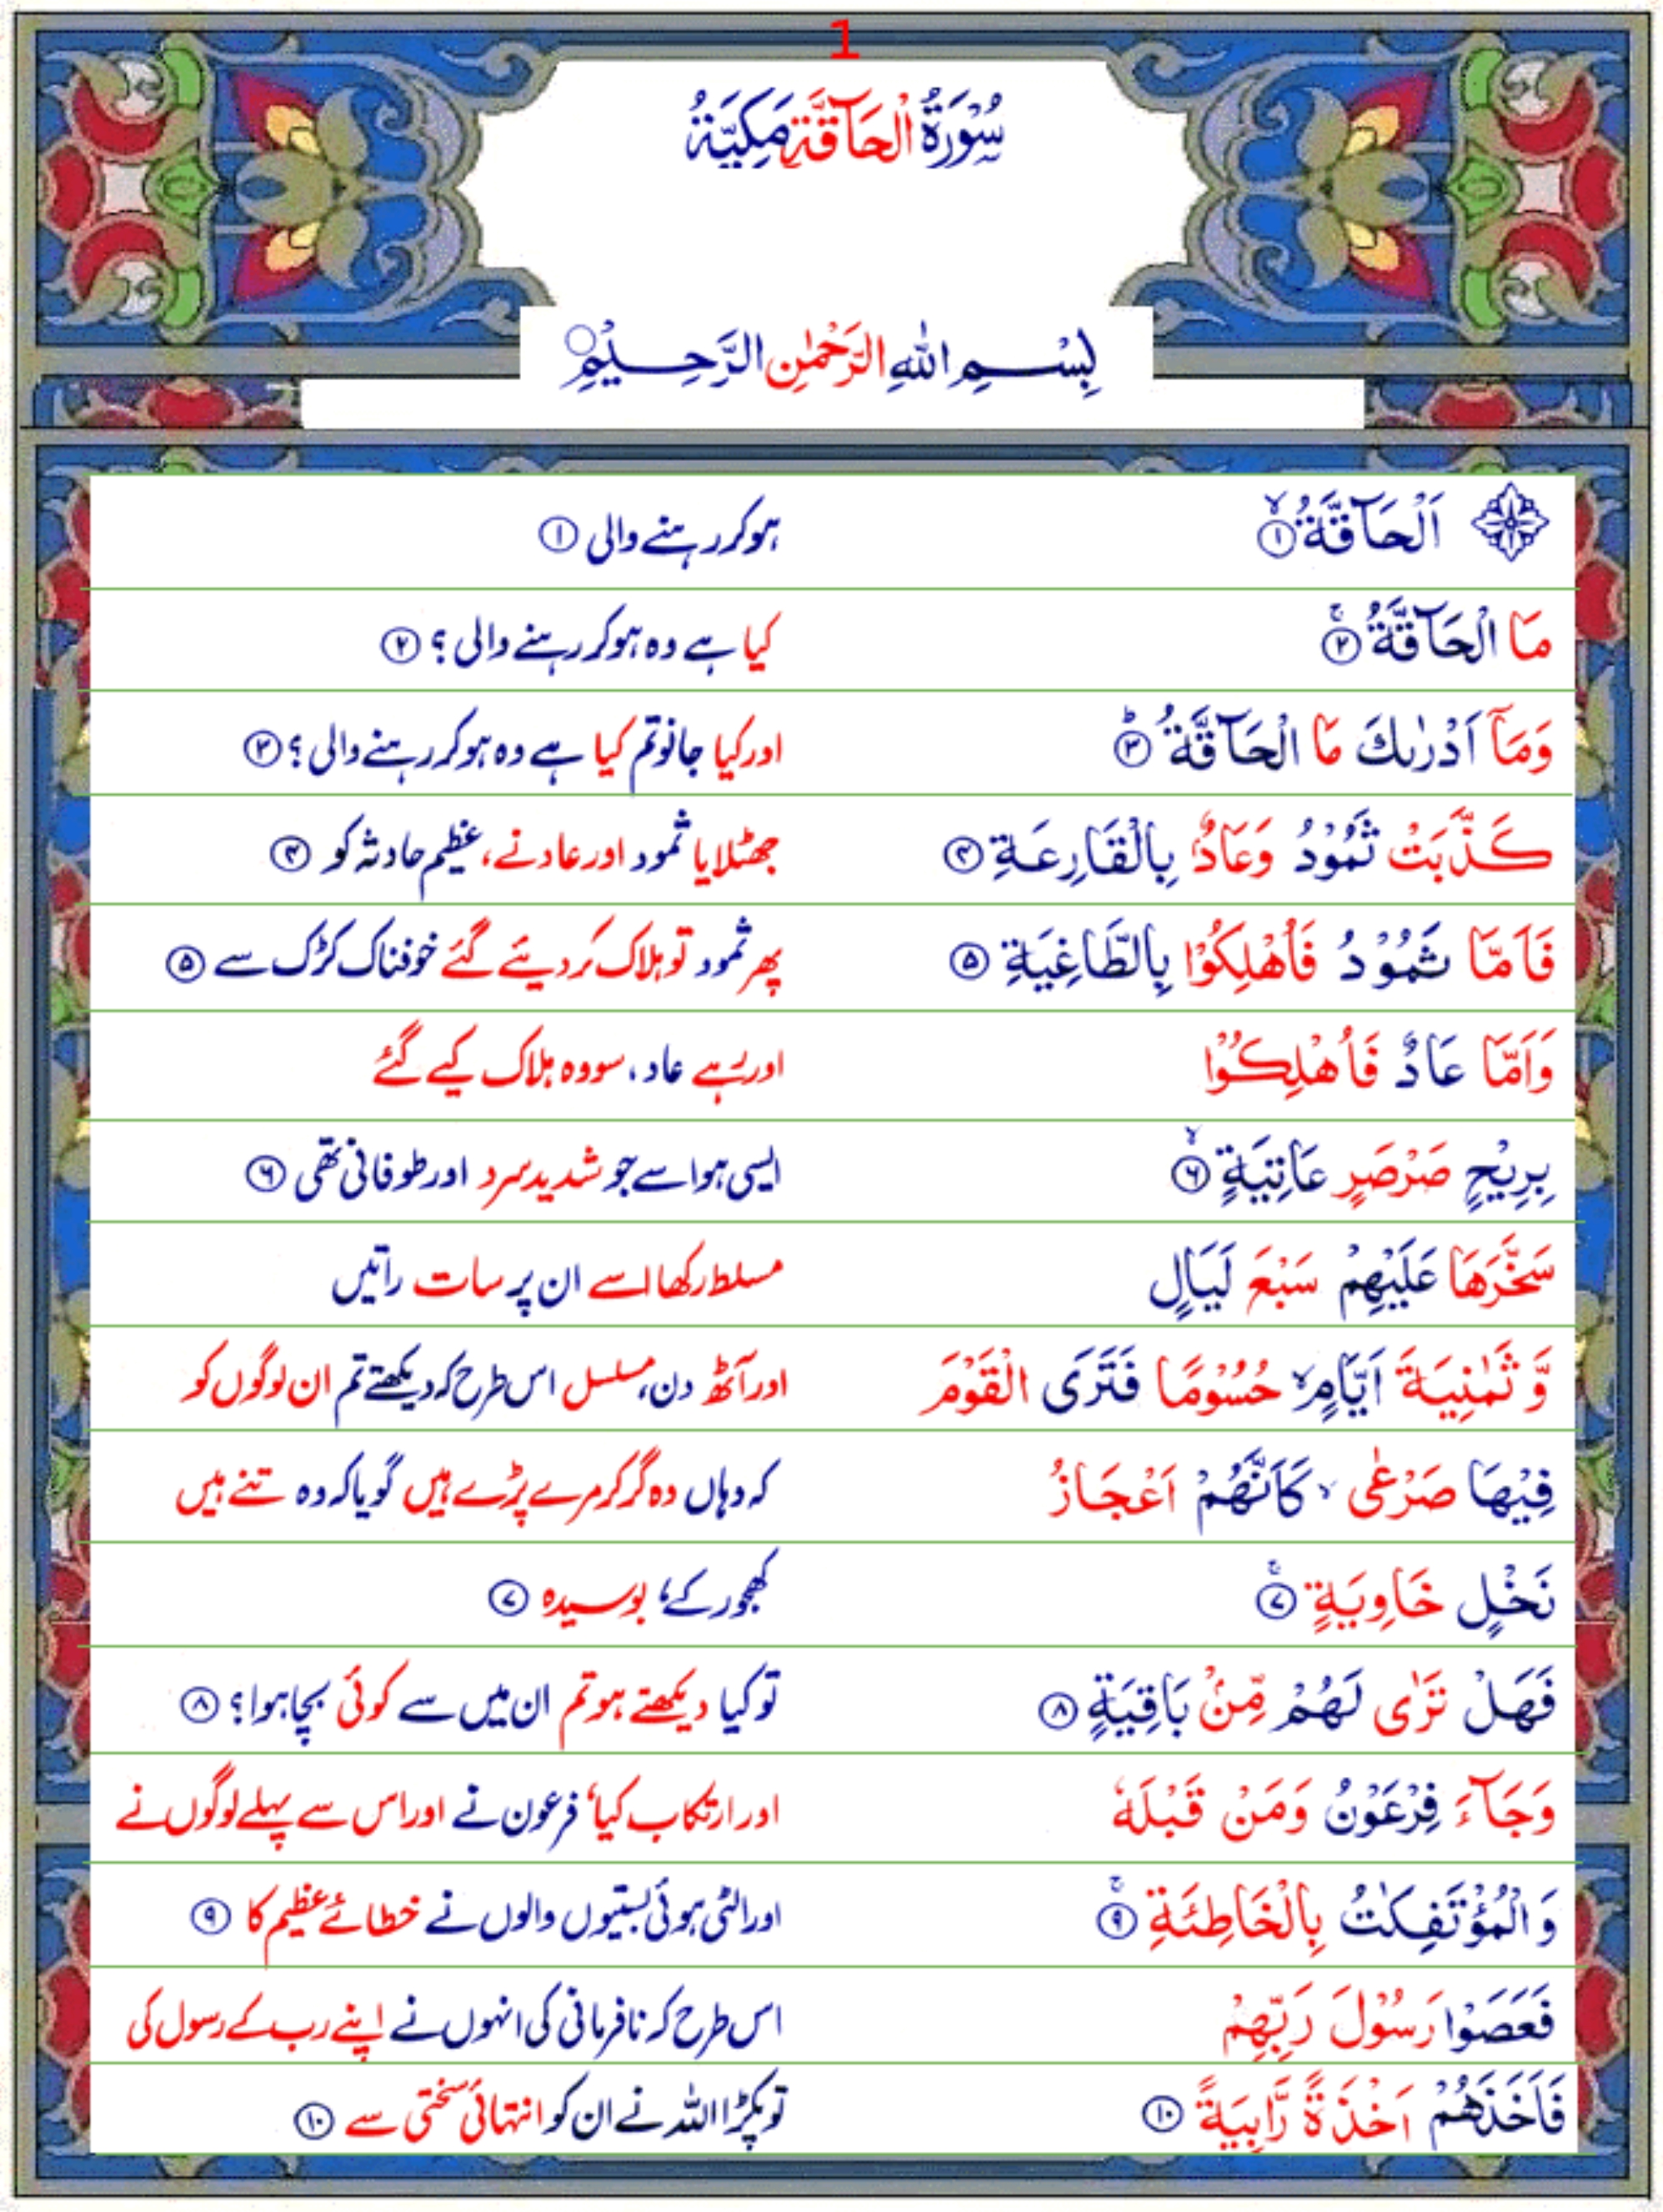 1
سُوْرَةُ الْحَآقَّةِ مَكِيَّةٌ
بِسْمِ اللّٰهِ الرَّحْمٰنِ الرَّحِيْمِ
اَلْحَآقَّةُ ۙ﴿۱﴾ ہوکر رہنے والی ﴿۱﴾
مَا الْحَآقَّةُ ۚ﴿۲﴾ کیا ہے وہ ہوکر رہنے والی ؟ ﴿۲﴾
وَمَآ اَدْرٰىكَ مَا الْحَآقَّةُ ؕ﴿۳﴾ اور کیا جانو تم کیا ہے وہ ہوکر رہنے والی ؟ ﴿۳﴾
كَذَّبَتْ ثَمُوْدُ وَعَادٌۢ بِالْقَارِعَةِ ﴿۴﴾ جھٹلایا ثمود اور عاد نے، عظیم حادثہ کو ﴿۴﴾
فَاَمَّا ثَمُوْدُ فَاُهْلِكُوْا بِالطَّاغِيَةِ ﴿۵﴾ پھر ثمود تو ہلاک کردیئے گئے خوفناک کڑک سے ﴿۵﴾
وَاَمَّا عَادٌ فَاُهْلِكُوْا اور رہے عاد ، سو وہ ہلاک کیے گئے
بِرِيْحٍ صَرْصَرٍ عَاتِيَةٍ ۙ﴿۶﴾ ایسی ہوا سے جو شدید سرد اور طوفانی تھی ﴿۶﴾
سَخَّرَهَا عَلَيْهِمْ سَبْعَ لَيَالٍ مسلط رکھا اسے ان پر سات راتیں
وَّثَمٰنِيَةَ اَيَّامٍ ۙ حُسُوْمًا فَتَرَى الْقَوْمَ اور آٹھ دن، مسلسل اس طرح کہ دیکھتے تم ان لوگوں کو
فِيْهَا صَرْعٰى ۙ كَاَنَّهُمْ اَعْجَازُ کہ وہاں وہ گر کر مرے پڑے ہیں گویا کہ وہ تنے ہیں
نَخْلٍ خَاوِيَةٍ ۚ﴿۷﴾ کھجور کے، بوسیدہ ﴿۷﴾
فَهَلْ تَرٰى لَهُمْ مِّنْۢ بَاقِيَةٍ ﴿۸﴾ تو کیا دیکھتے ہو تم ان میں سے کوئی بچا ہوا؟ ﴿۸﴾
وَجَآءَ فِرْعَوْنُ وَمَنْ قَبْلَهٗ اور ارتکاب کیا، فرعون نے اور اس سے پہلے لوگوں نے
وَالْمُؤْتَفِكٰتُ بِالْخَاطِئَةِ ۚ﴿۹﴾ اور الٹی ہوئی بستیوں والوں نے خطائے عظیم کا ﴿۹﴾
فَعَصَوْا رَسُوْلَ رَبِّهِمْ اس طرح کہ نافرمانی کی انہوں نے اپنے رب کے رسول کی
فَاَخَذَهُمْ اَخْذَةً رَّابِيَةً ﴿۱۰﴾ تو پکڑا اللہ نے ان کو انتہائی سختی سے ﴿۱۰﴾